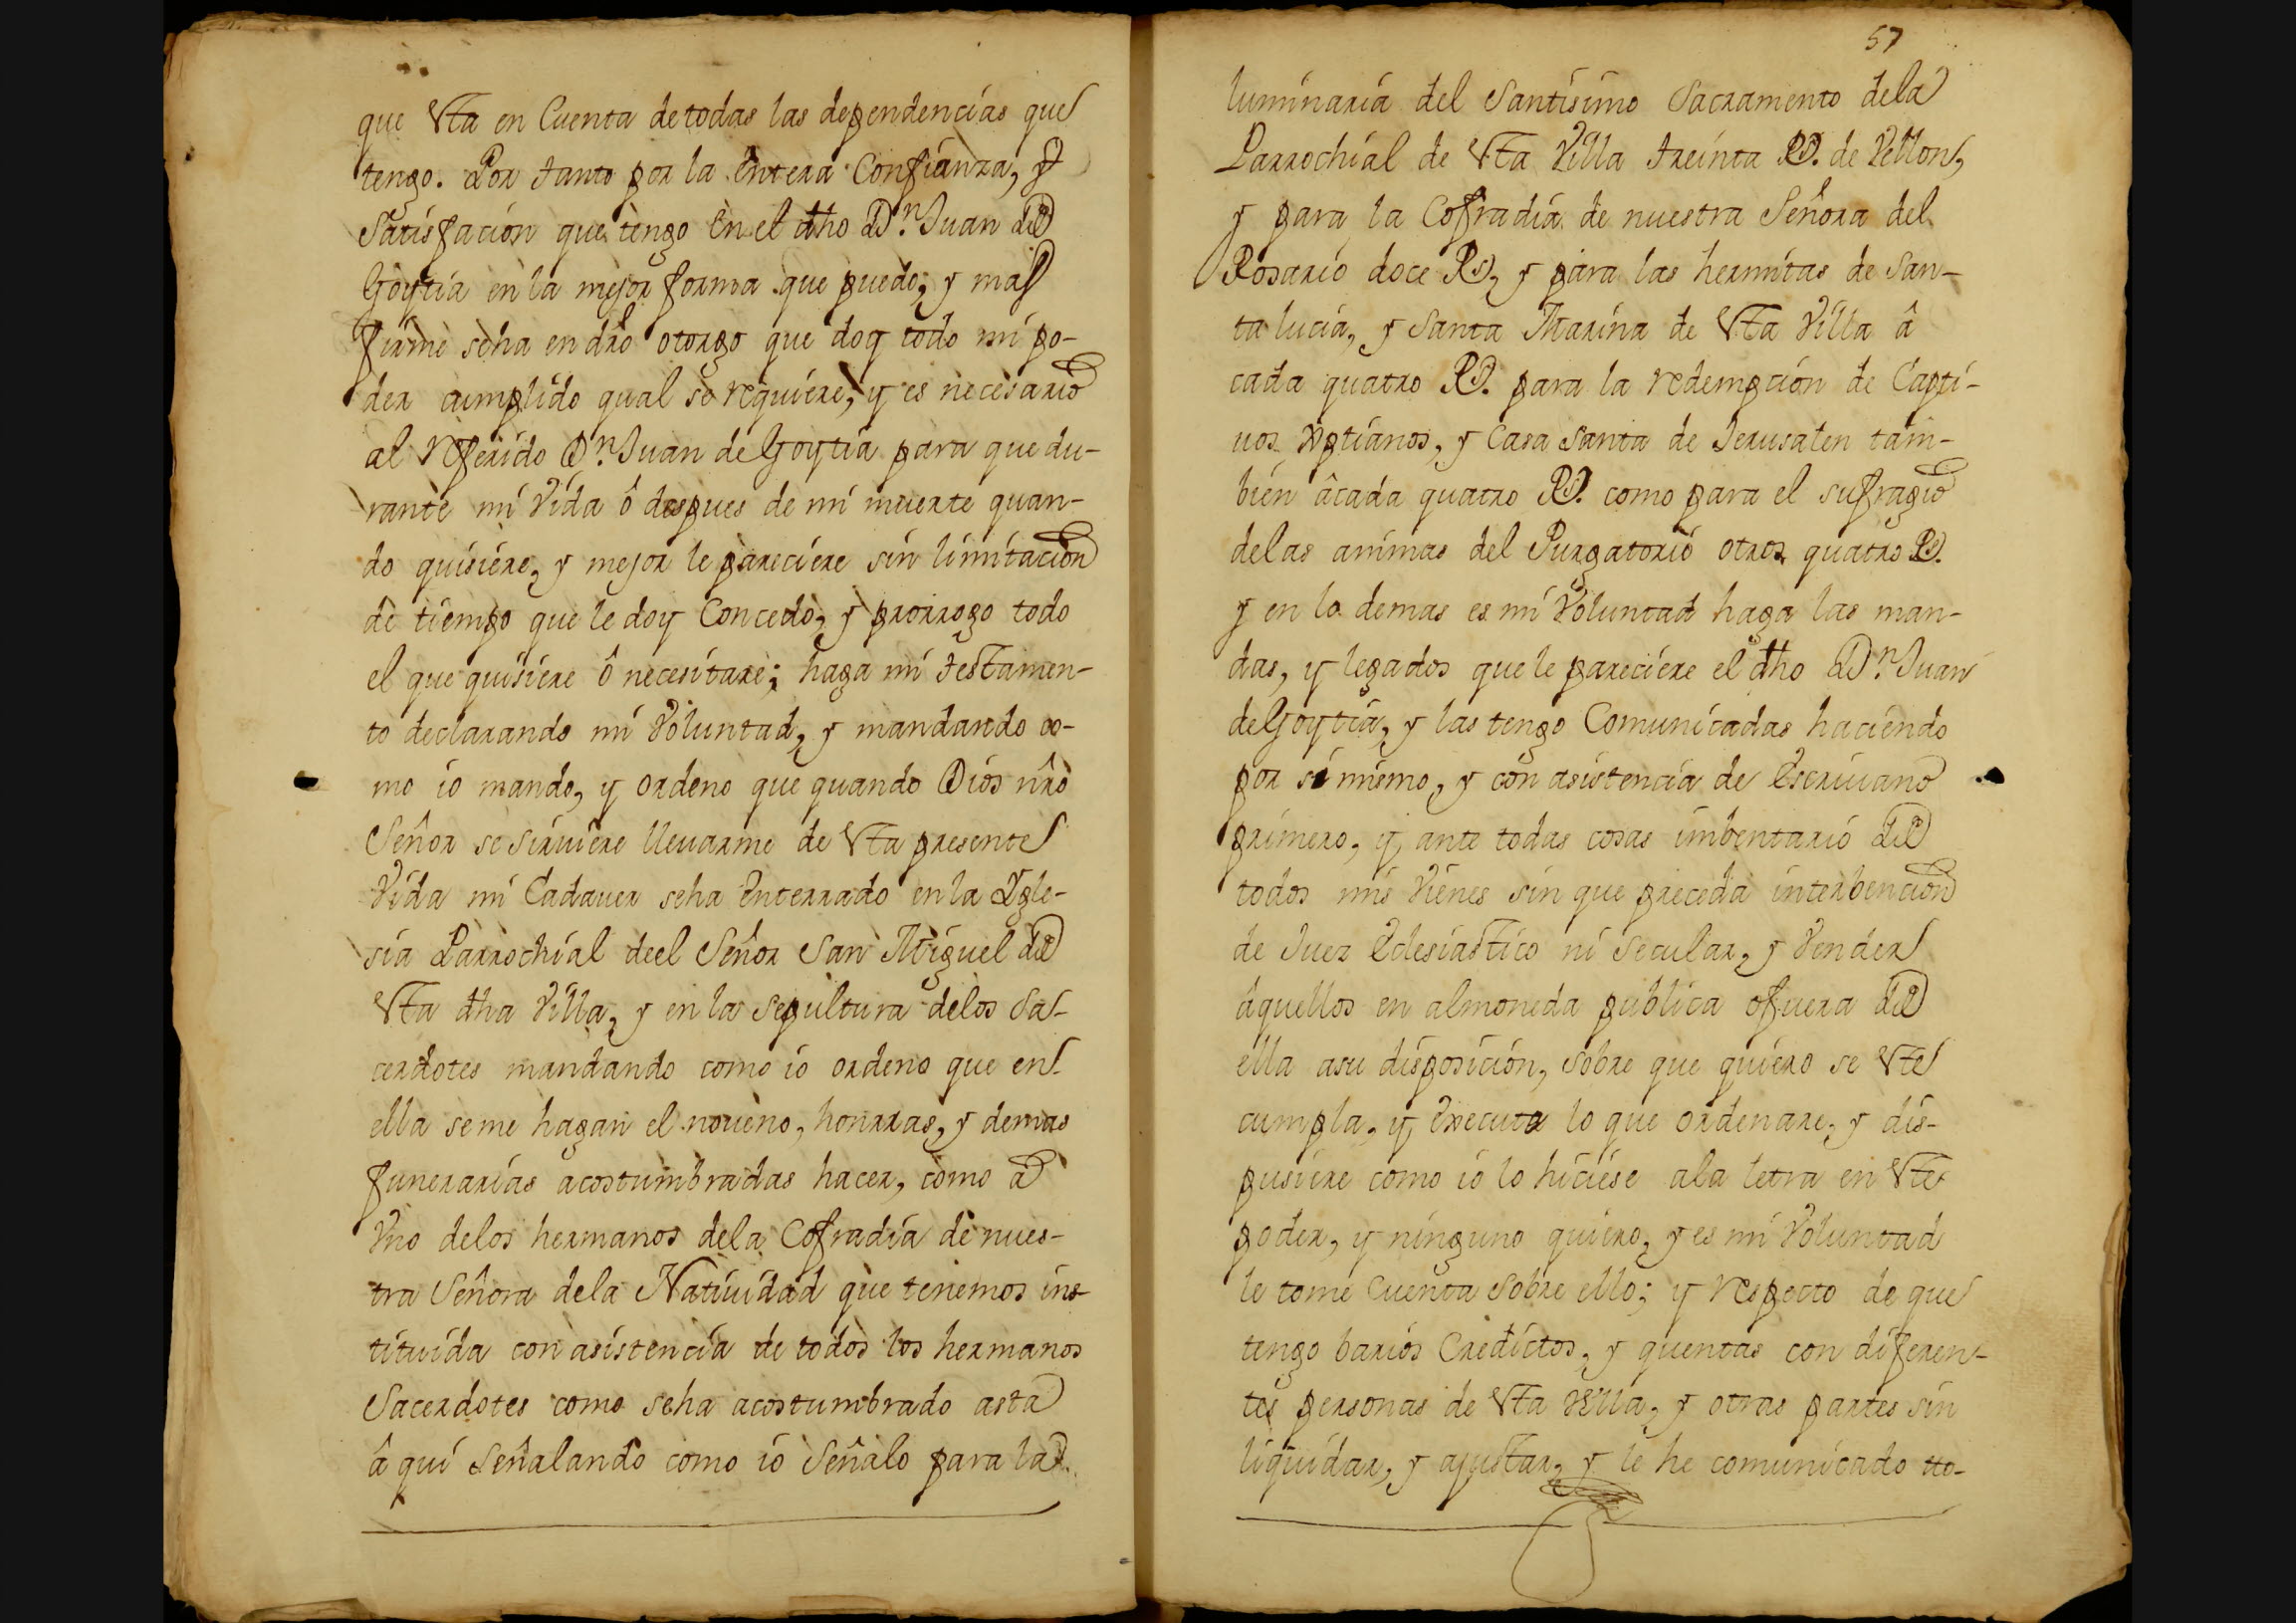 que esta en Cuenta de todas las dependencias que
tengo. Por tanto por la entera Confianza, y
Satisfacion que tengo en el dho Dn. Juan de
Goytia en la mejor forma que puedo, y mas
firme seha en dro otorgo que doy todo mi po-
der cumplido qual se requiere, y es necesario
al referido Dn. Juan de Goytia para que du-
rante mi Vida ô despues de mi muerte quan-
do quisiere, y mejor le pareciere sin limitacion
de tiempo que le doy Concedo, y prorrogo todo
el que quisiere ô necesitare; haga mi testamen-
to declarando mi Voluntad, y mandando co-
mo io mando, y ordeno que quando Dios nrô
Señor se sirviere llevarme de esta presente
Vida mi Cadaver seha enterrado en la Igle-
sia Parrochial deel Señor San Miguel de
esta dha Villa, y en la sepultura delos Sa-
cerdotes mandando como io ordeno que en
ella se me hagan el noveno, honrras, y demas
funerarias acostumbradas hacer, como a
Uno delos hermanos dela Cofradia de nues-
tra Señora dela Natiuidad que tenemos ins-
tituida con asistencia de todos los hermanos
Sacerdotes como seha acostumbrado asta
â qui Señalando como io Señalo para la
57
luminaria del Santisimo Sacramento dela
Parrochial de esta Villa treinta Rs. de Vellon,
y para la Cofradia de nuestra Señora del
Rosario doce Rs, y para las hermitas de San-
ta lucia, y Santa Marina de esta Villa â
cada quatro Rs. para la redempcion de Capti-
uos Xptianos, y Casa Santa de Jerusalen tam-
bien âcada quatro Rs. como para el sufragio
delas animas del Purgatorio otros quatro Rs.
y en lo demas es mi Voluntad haga las man-
das, y legados que le pareciere el dho Dn. Juan
de Goytia, y las tengo Comunicadas haciendo
por si mismo, y con asistencia de Escriuano
primero, y ante todas cosas imbentario de
todos mis Vienes sin que preceda interbencion
de Juez Eclesiastico ni Secular, y Vender
âquellos en almoneda publica ofuera de
ella asu disposicion, sobre que quiero se este
cumpla, y execute lo que ordenare, y dis-
pusiere como io lo hiciese ala letra en este
poder, y ninguno quiero, y es mi Voluntad
le tome Cuenta sobre ello; y respecto de que
tengo barios Credictos, y quentas con diferen-
tes personas de esta Villa, y otras partes sin
liquidar, y ajustar, y le he comunicado tto-